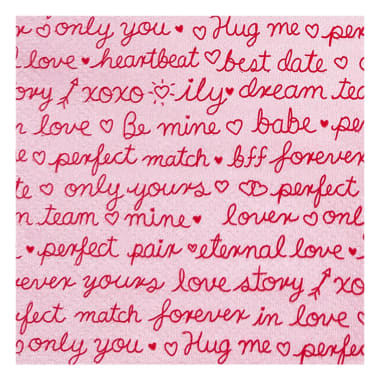 only you Hug me perf
love heartbeat best date
ory xoxo ily dream tea
n love Be mine babe pe
e perfect match bff forever
te only yours perfect
n team mine lover onl
perfect pair eternal love
ever yours love story xo
fect match forever in love
only you Hug me perfe